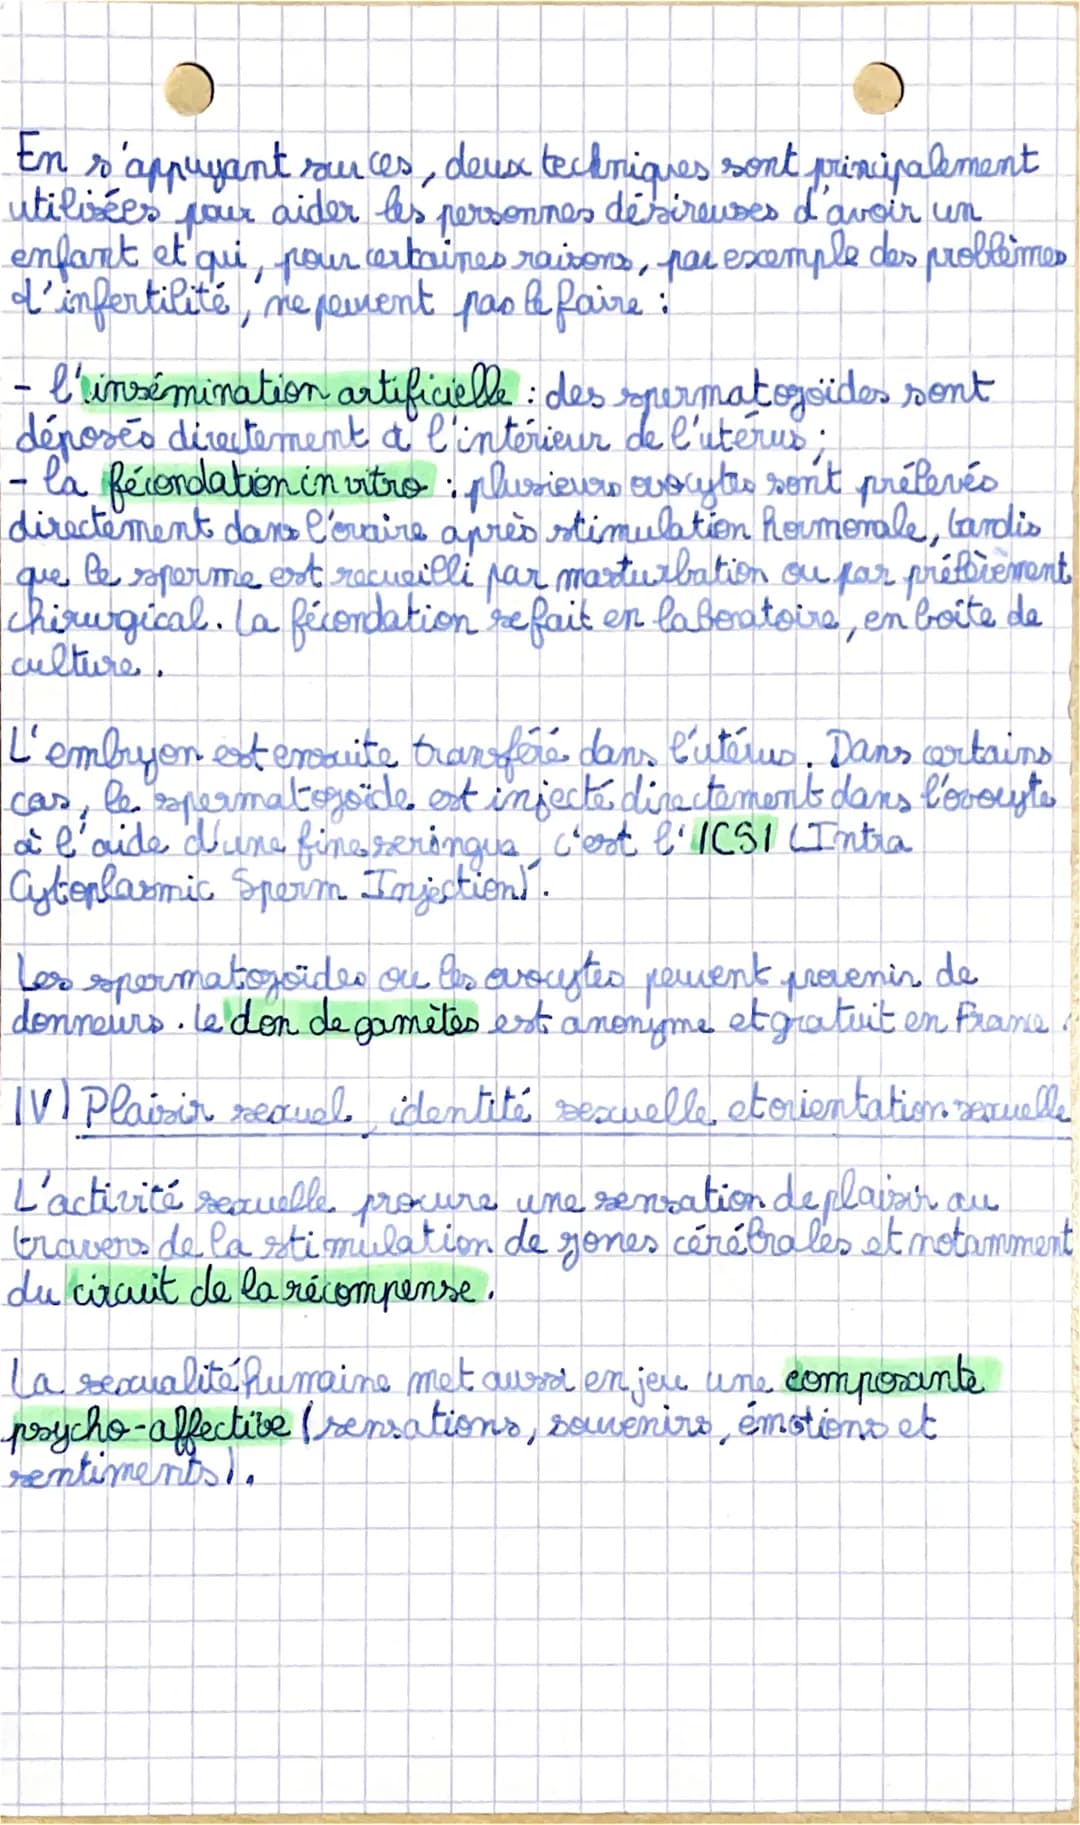 En s'appuyant sur ces, deux techniques sont principalement
utilisées pour aider les personnes désireuses d'avoir un
enfant et qui, pour certaines raisons, par exemple des problèmes
d'infertilité, ne peuvent pas le faire :
- l'insémination artificielle : des spermatozoïdes sont
déposés directement à l'intérieur de l'utérus ;
- la fécondation in vitro : plusieurs ovocytes sont prélevés
directement dans l'ovaire après stimulation hormonale, tandis
que le sperme est recueilli par masturbation ou par prélèvement
chirurgical. La fécondation se fait en laboratoire, en boîte de
culture.
L'embryon est ensuite transféré dans l'utérus. Dans certains
cas, le spermatozoïde est injecté directement dans l'ovocyte
à l'aide d'une fine seringue, c'est l'ICSI (Intra
Cytoplasmic Sperm Injection).
Les spermatozoïdes ou les ovocytes peuvent provenir de
donneurs. Le don de gamètes est anonyme et gratuit en France.
IV) Plaisir sexuel, identité sexuelle et orientation sexuelle
L'activité sexuelle procure une sensation de plaisir au
travers de la stimulation de zones cérébrales et notamment
du circuit de la récompense.
La sexualité humaine met aussi en jeu une composante
psycho-affective (sensations, souvenirs, émotions et
sentiments).